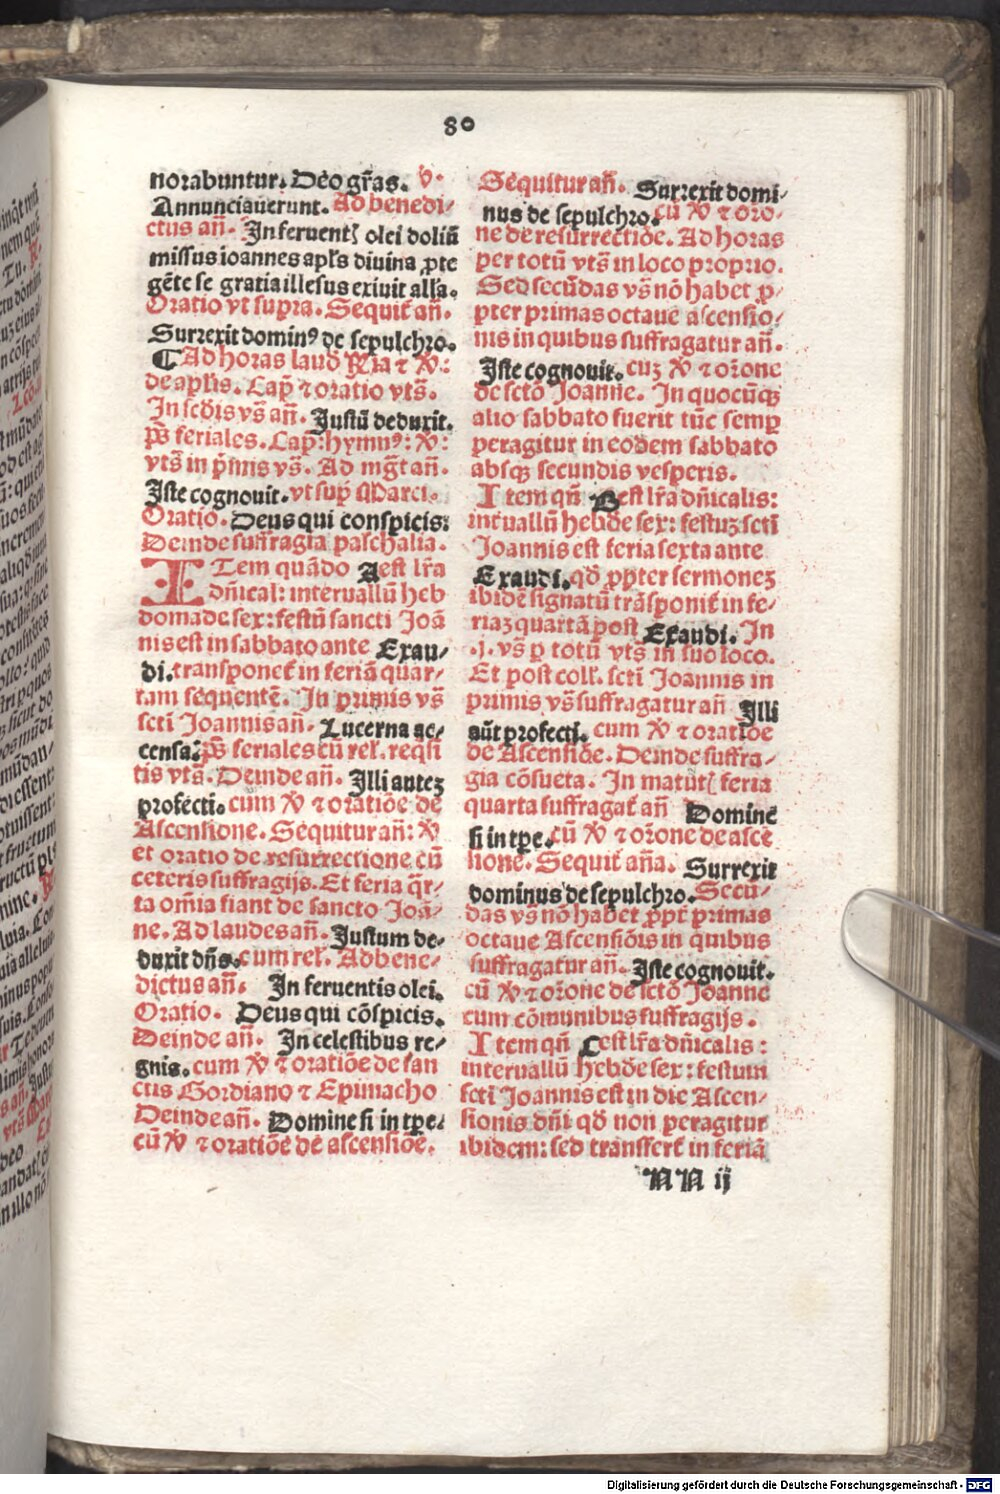 80
norabuntur. Deo gr̃as. v̄.
Annunciauerunt. Ad benedi⸗
ctus añ. In feruentꝭ olei doliũ
missus ioannes apl̃s diuina ꝓte
gẽte se gratia illesus exiuit alla.
Oratio vt supra. Sequit̃ añ.
Surrexit dominꝰ de sepulchro.
¶ Ad horas laud̃ R̃ia ⁊ ℣:
de apl̃is. Cap̃ ⁊ oratio vts̃.
In sc̃dis vs̃ añ. Justũ deduxit.
ps̃ feriales. Cap̃: hymnꝰ: ℣:
vts̃ in p̃mis vs̃. Ad mg̃t añ.
Iste cognouit. vt sup̃ Marci.
Oratio. Deus qui conspicis:
Deinde suffragia paschalia.
ITem quãdo A est lr̃a
dñical: interuallũ heb
domade sex: festũ sancti Joã
nis est in sabbato ante Exau⸗
di. transponet̃ in feriã quar⸗
tam sequentẽ. In primis vs̃
scti Joannis añ. Lucerna ac⸗
censa: ps̃ feriales cũ rel̃. reqsi
tis vts̃. Deinde añ. Illi autez
profecti. cum ℣ ⁊ oratiõe de
Ascensione. Sequitur añ: ℣
et oratio de resurrectione cũ
ceteris suffragijs. Et feria q̃r⸗
ta om̃ia fiant de sancto Joã⸗
ne. Ad laudes añ. Justum de⸗
duxit dñs. cum rel̃. Ad bene⸗
dictus añ. In feruentis olei.
Oratio. Deus qui cõspicis.
Deinde añ. In celestibus re⸗
gnis. cum ℣ ⁊ oratiõe de san
ctis Gordiano ⁊ Epimacho
Deinde añ. Domine si in tp̃e⸗
cũ ℣ ⁊ oratiõe de ascensiõe.
Sequitur añ. Surrexit domi⸗
nus de sepulchro. cũ ℣ ⁊ oro⸗
ne de resurrectiõe. Ad horas
per totũ vts̃ in loco proprio.
Sed secũdas vs̃ nõ habet ꝓ⸗
pter primas octaue ascensio⸗
nis in quibus suffragatur añ.
Iste cognouit. cuz ℣ ⁊ or̃one
de sctõ Joanne. In quocũqꝫ
alio sabbato fuerit tũc semꝑ
peragitur in eodem sabbato
absqꝫ secundis vesperis.
Item qñ B est lr̃a dñicalis:
int̃uallũ hebde sex: festuz scti
Joannis est feria sexta ante
Exaudi. qd̃ ꝓpter sermonez
ibidẽ signatũ trãsponit̃ in fe⸗
riaz quartã post Exaudi. In
.j. vs̃ ꝑ totũ vts̃ in suo loco.
Et post coll̃. scti Joannis in
primis vs̃ suffragatur añ Illi
aũt profecti. cum ℣ ⁊ oratiõe
de Ascensiõe. Deinde suffra⸗
gia cõsueta. In matutꝭ feria
quarta suffragat̃ añ Domine
si in tp̃e. cũ ℣ ⁊ or̃one de asce
sione. Sequit̃ aña. Surrexit
dominus de sepulchro. Secũ⸗
das vs̃ nõ habet ꝓpt̃ primas
octaue Ascensiõis in quibus
suffragatur añ. Iste cognouit.
cũ ℣ ⁊ or̃one de sctõ Joanne
cum cõmunibus suffragijs.
Item qñ C est lr̃a dñicalis:
interuallũ hebde sex: festum
scti Joannis est in die Ascen⸗
sionis dñi qd̃ non peragitur
ibidem: sed transfert̃ in feriã
NN ij
Digitalisierung gefördert durch die Deutsche Forschungsgemeinschaft - DFG